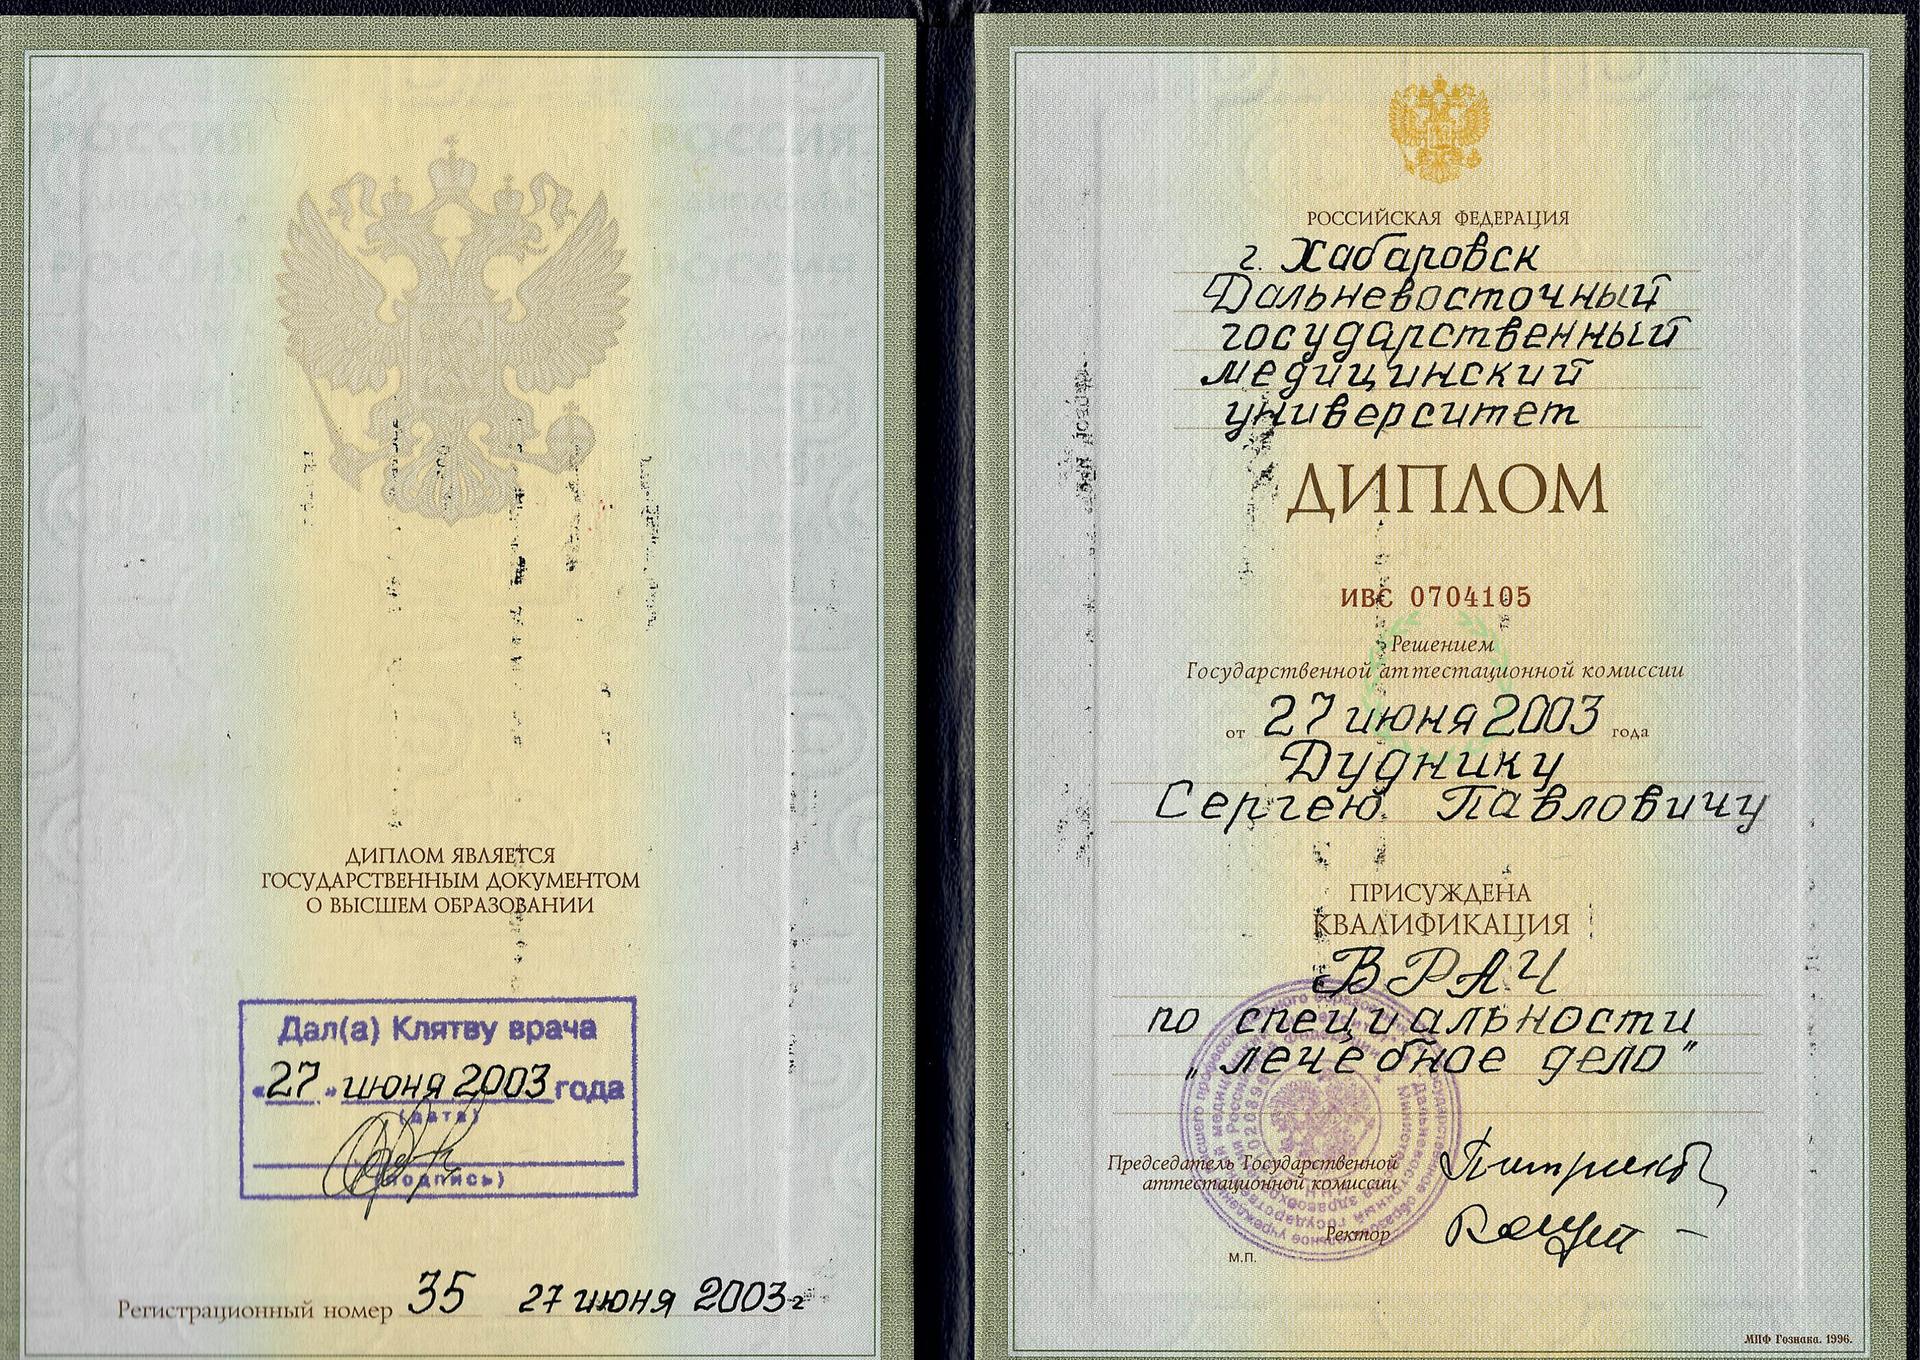 ДИПЛОМ ЯВЛЯЕТСЯ
ГОСУДАРСТВЕННЫМ ДОКУМЕНТОМ
О ВЫСШЕМ ОБРАЗОВАНИИ
Дал(а) Клятву врача
«27» июня 2003 года
(дата)
(подпись)
Регистрационный номер 35 27 июня 2003 г
РОССИЙСКАЯ ФЕДЕРАЦИЯ
г. Хабаровск
Дальневосточный
государственный
медицинский
университет
ДИПЛОМ
ИВС 0704105
Решением
Государственной аттестационной комиссии
от 27 июня 2003 года
Дуднику
Сергею Павловичу
ПРИСУЖДЕНА
КВАЛИФИКАЦИЯ
ВРАЧ
по специальности
„лечебное дело"
Председатель Государственной
аттестационной комиссии
Ректор
М.П.
МПФ Гознака. 1996.